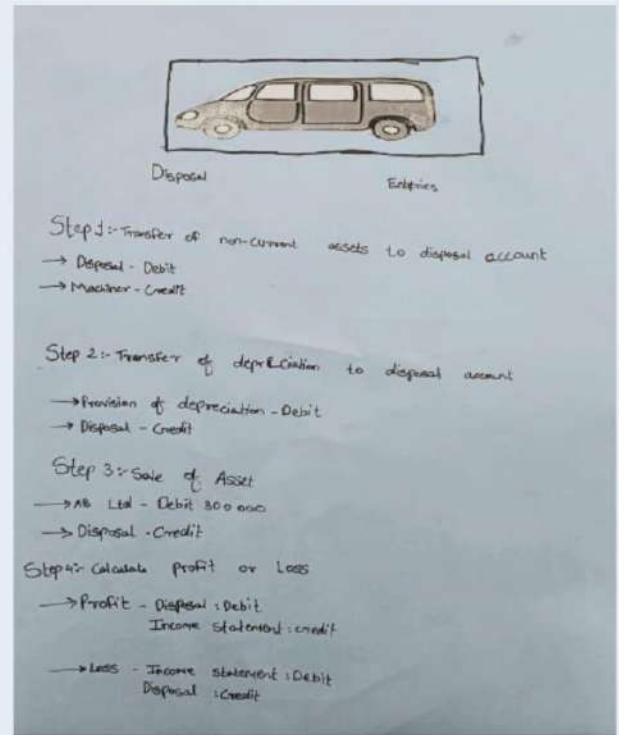 Disposal Entries
Step 1:- Transfer of non-current assets to disposal account
→ Disposal - Debit
→ Machiner - Credit
Step 2:- Transfer of depreciation to disposal account
→ Provision of depreciation - Debit
→ Disposal - Credit
Step 3:- Sale of Asset
→ AB Ltd - Debit 300 000
→ Disposal - Credit
Step 4:- Calculate Profit or Loss
→ Profit - Disposal : Debit
Income Statement : credit
→ Loss - Income statement : Debit
Disposal : Credit